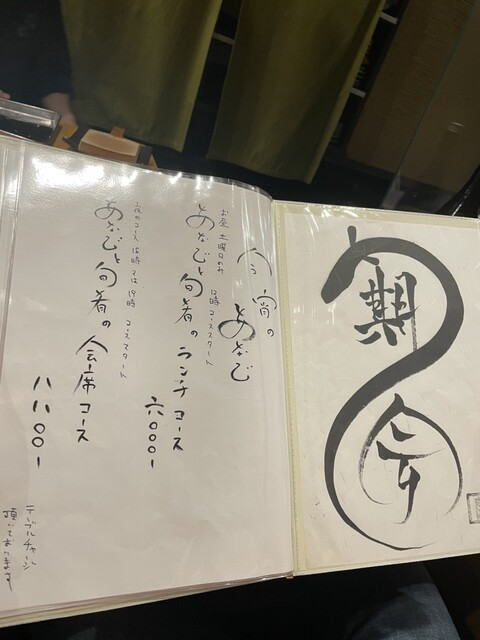 一期一会
今宵の あなご
お昼 土曜日のみ 12時コーススタート
あなごと旬肴の ランチコース
六〇〇〇ー
夜のコース 18時 又は 19時 コーススタート
あなごと旬肴の 会席コース
八八〇〇ー
テーブルチャージ
頂いております